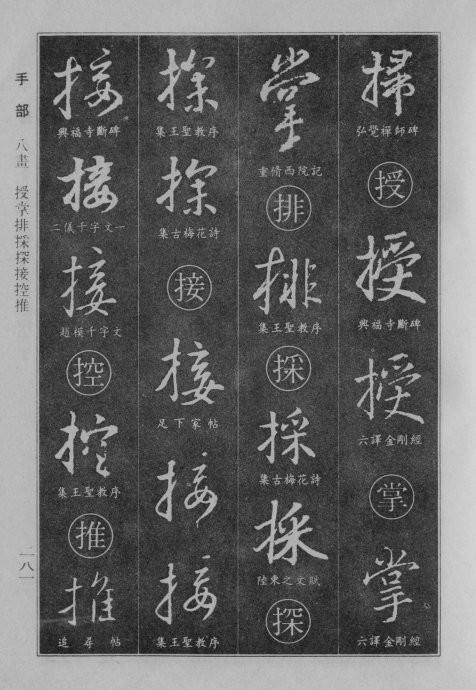 掃
弘覺禪師碑
授
授
興福寺斷碑
授
六譯金剛經
掌
掌
六譯金剛經
掌
重脩西院記
排
排
集王聖教序
採
採
集古梅花詩
採
陸東之文賦
探
探
集王聖教序
探
集古梅花詩
接
接
足下家帖
接
接
集王聖教序
接
興福寺斷碑
接
二儀千字文一
接
趙模千字文
控
控
集王聖教序
推
推
追尋帖
手部 八畫 授掌排採探接控推
一八一